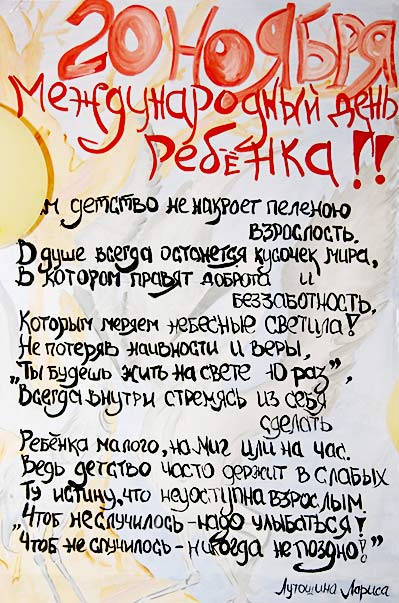 20 НОЯБРЯ
Международный день
ребёнка!!
И детство не накроет пеленою
взрослость.
В душе всегда останется кусочек мира,
В котором правят доброта и
беззаботность,
Которым меряем небесные светила!
Не потеряв наивности и веры,
„Ты будешь жить на свете 10 раз",
Всегда внутри стремясь из себя
сделать
Ребёнка малого, на миг или на час.
Ведь детство часто держит в слабых
Ту истину, что недоступна взрослым.
„Чтоб не случилось - надо улыбаться!
„Чтоб не случилось - никогда не поздно!"
Лутошина Лариса